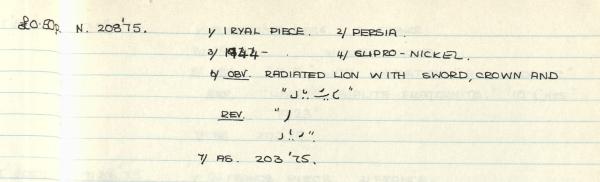 N. 208'75. 1/ 1 RYAL PIECE. 2/ PERSIA.
3/ – 4/ CUPRO-NICKEL.
6/ OBV. RADIATED LION WITH SWORD, CROWN AND
REV.
7/ AS. 203'75.